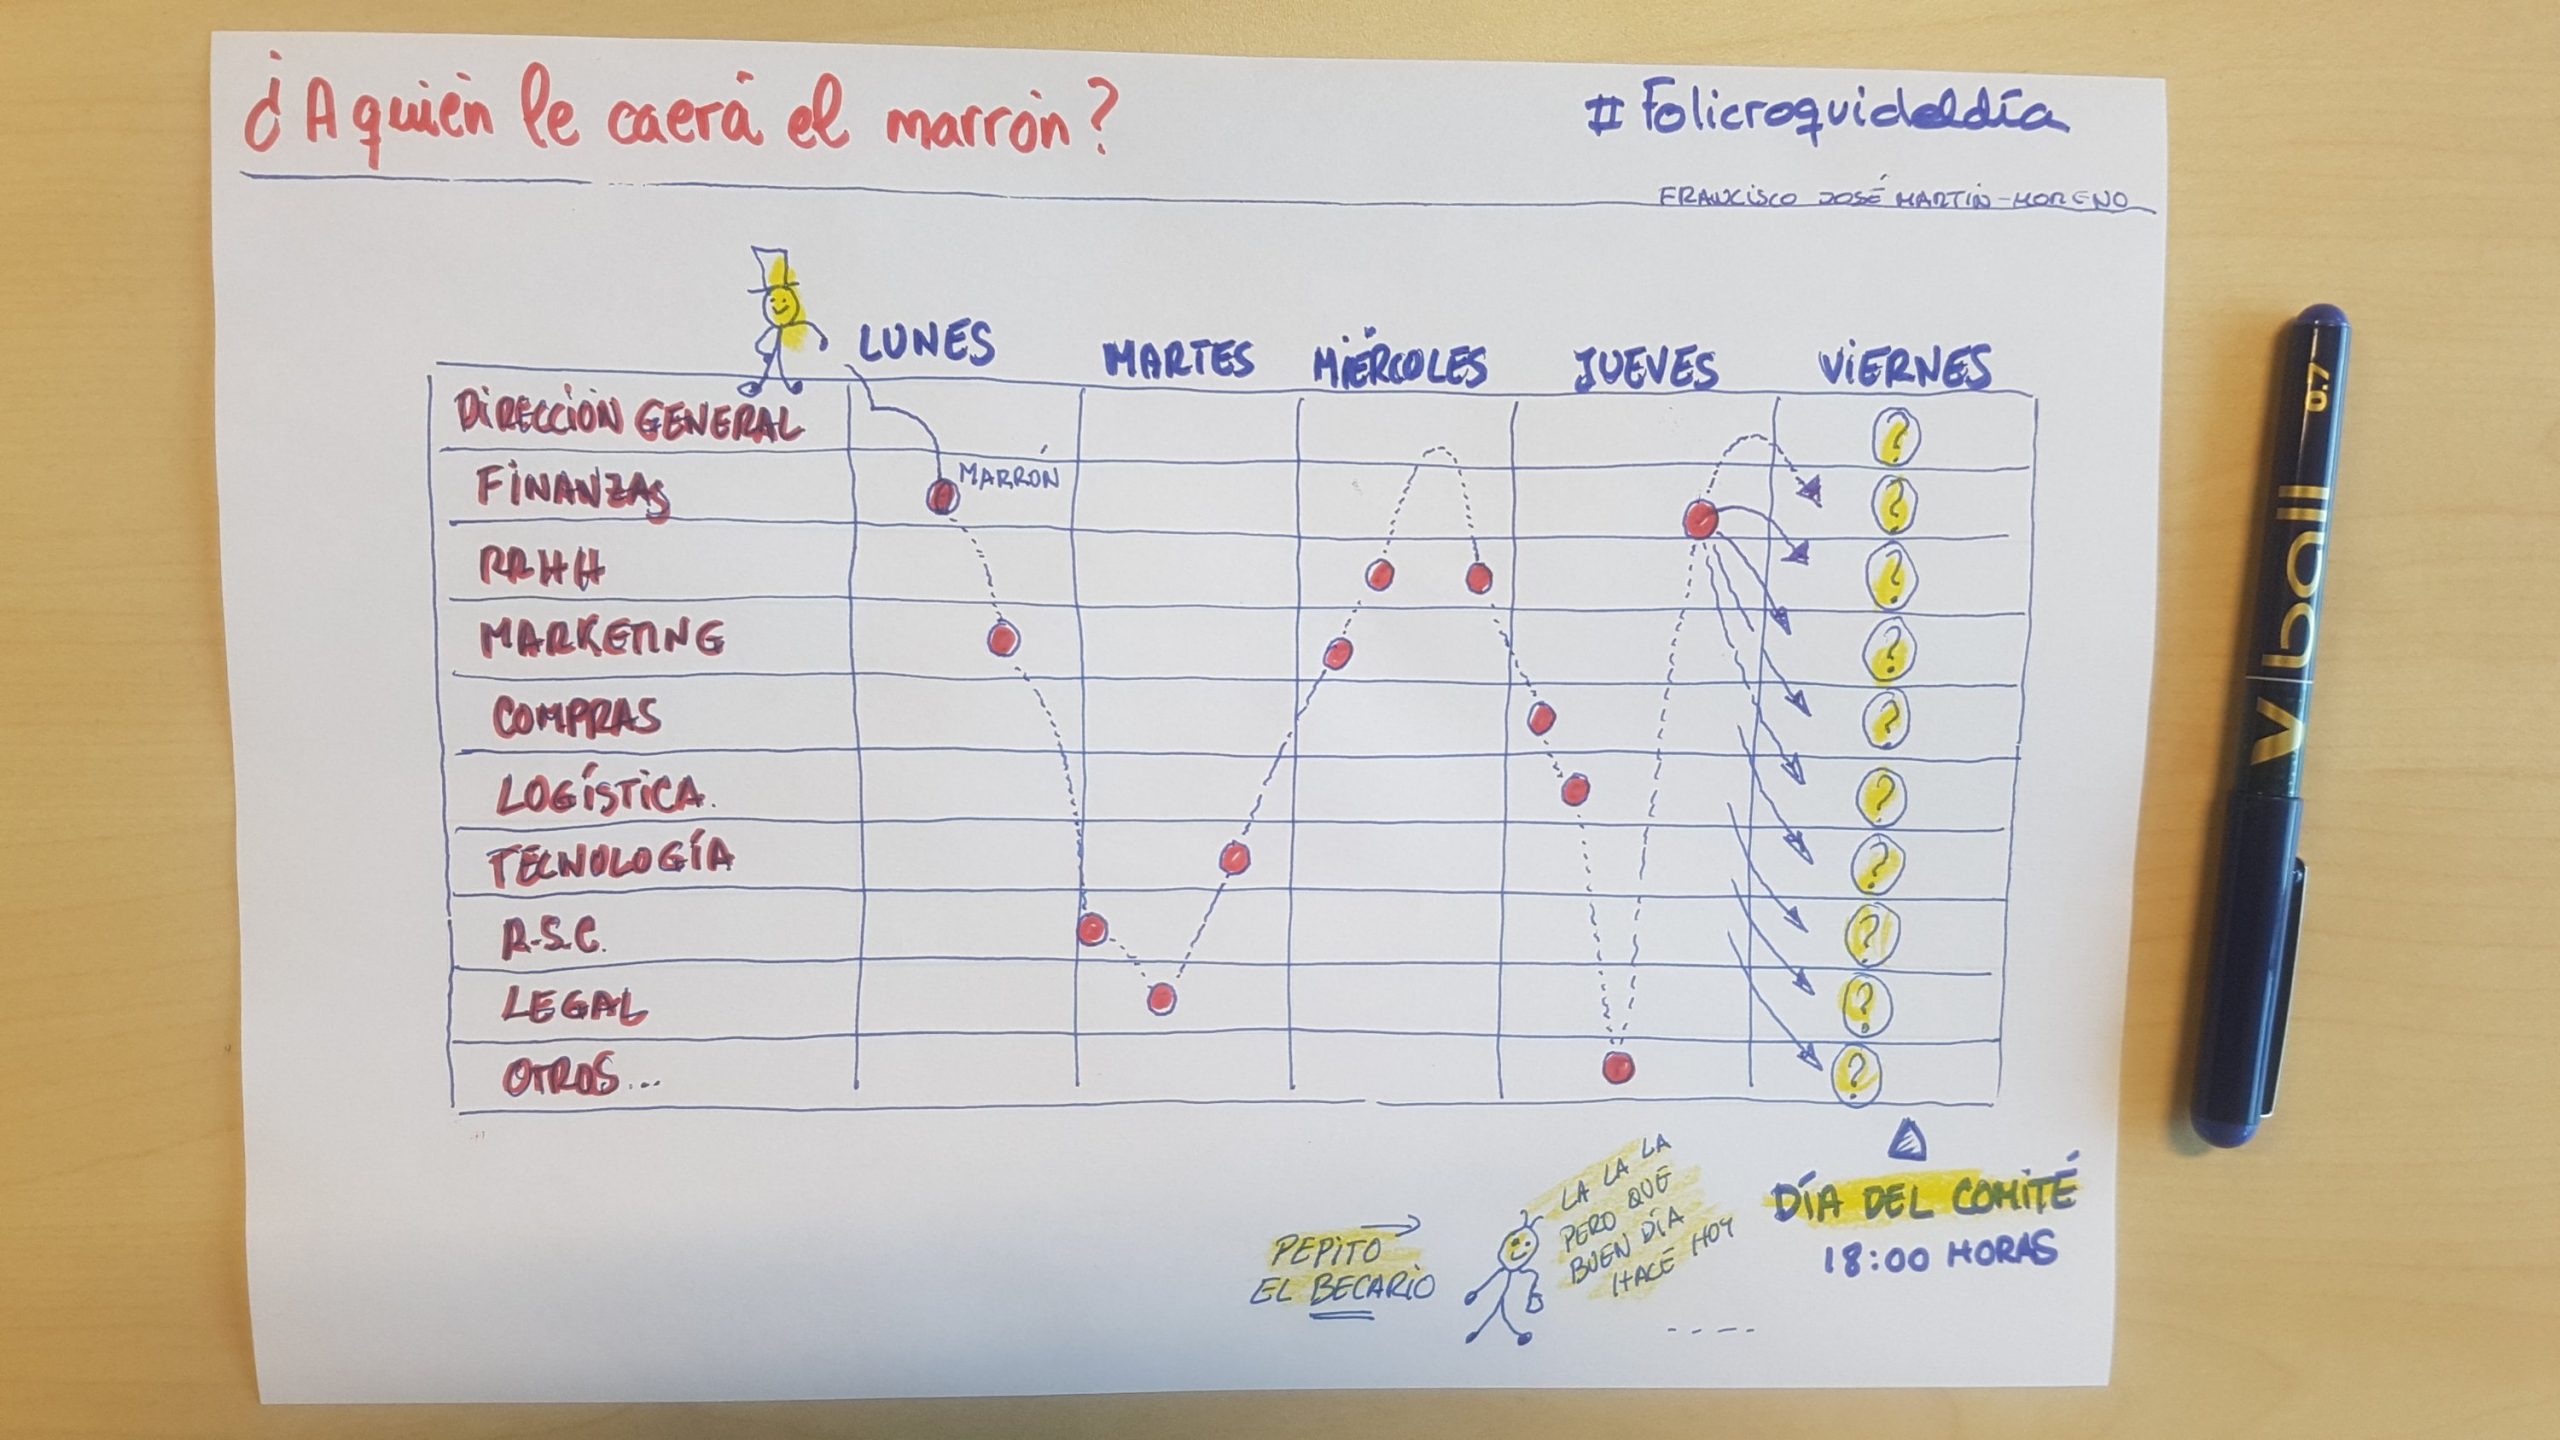 ¿A quién le caerá el marrón?
#Folicroquideldía
FRANCISCO JOSÉ MARTÍN-MORENO
LUNES MARTES MIÉRCOLES JUEVES VIERNES
DIRECCIÓN GENERAL ?
FINANZAS MARRÓN ?
RRHH ?
MARKETING ?
COMPRAS ?
LOGÍSTICA. ?
TECNOLOGÍA ?
R.S.C. ?
LEGAL ?
OTROS... ?
PEPITO
EL BECARIO
LA LA LA
PERO QUE
BUEN DÍA
HACE HOY
DÍA DEL COMITÉ
18:00 HORAS
V ball 0.7